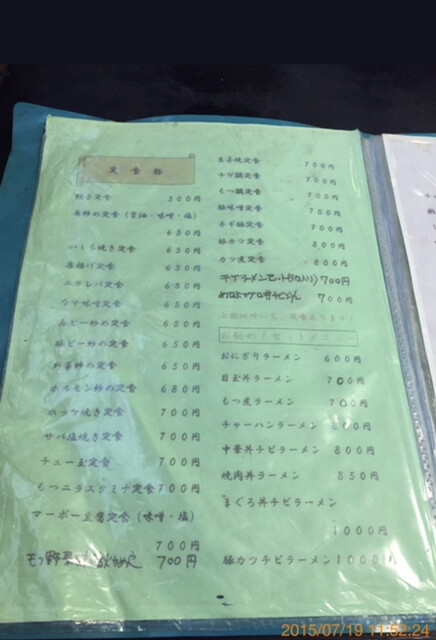 定食類
餃子定食 500円
鳥炒め定食（醤油・味噌・塩）
650円
かしら焼き定食 650円
唐揚げ定食 650円
ニラレバ定食 650円
なす味噌定食 650円
650円
豚ピー炒め定食 650円
野菜炒め定食 650円
ホルモン炒め定食 680円
ホッケ焼き定食 700円
サバ塩焼き定食 700円
チュー玉定食 700円
もつニラスタミナ定食 700円
マーボー豆腐定食（味噌・塩）
700円
モツ野菜 700円
生姜焼定食 700円
チゲ鍋定食 700円
もつ鍋定食 700円
豚味噌定食 700円
ネギ豚定食 700円
豚カツ定食 800円
カツ煮定食 800円
700円
700円
上記以外にも、定食あります！
お勧め！セットメニュー
おにぎりラーメン 600円
目玉丼ラーメン 700円
もつ煮ラーメン 700円
チャーハンラーメン 800円
中華丼チビラーメン 800円
焼肉丼ラーメン 850円
まぐろ丼チビラーメン
1000円
豚カツチビラーメン 1000円
2015/07/19 11:52:24